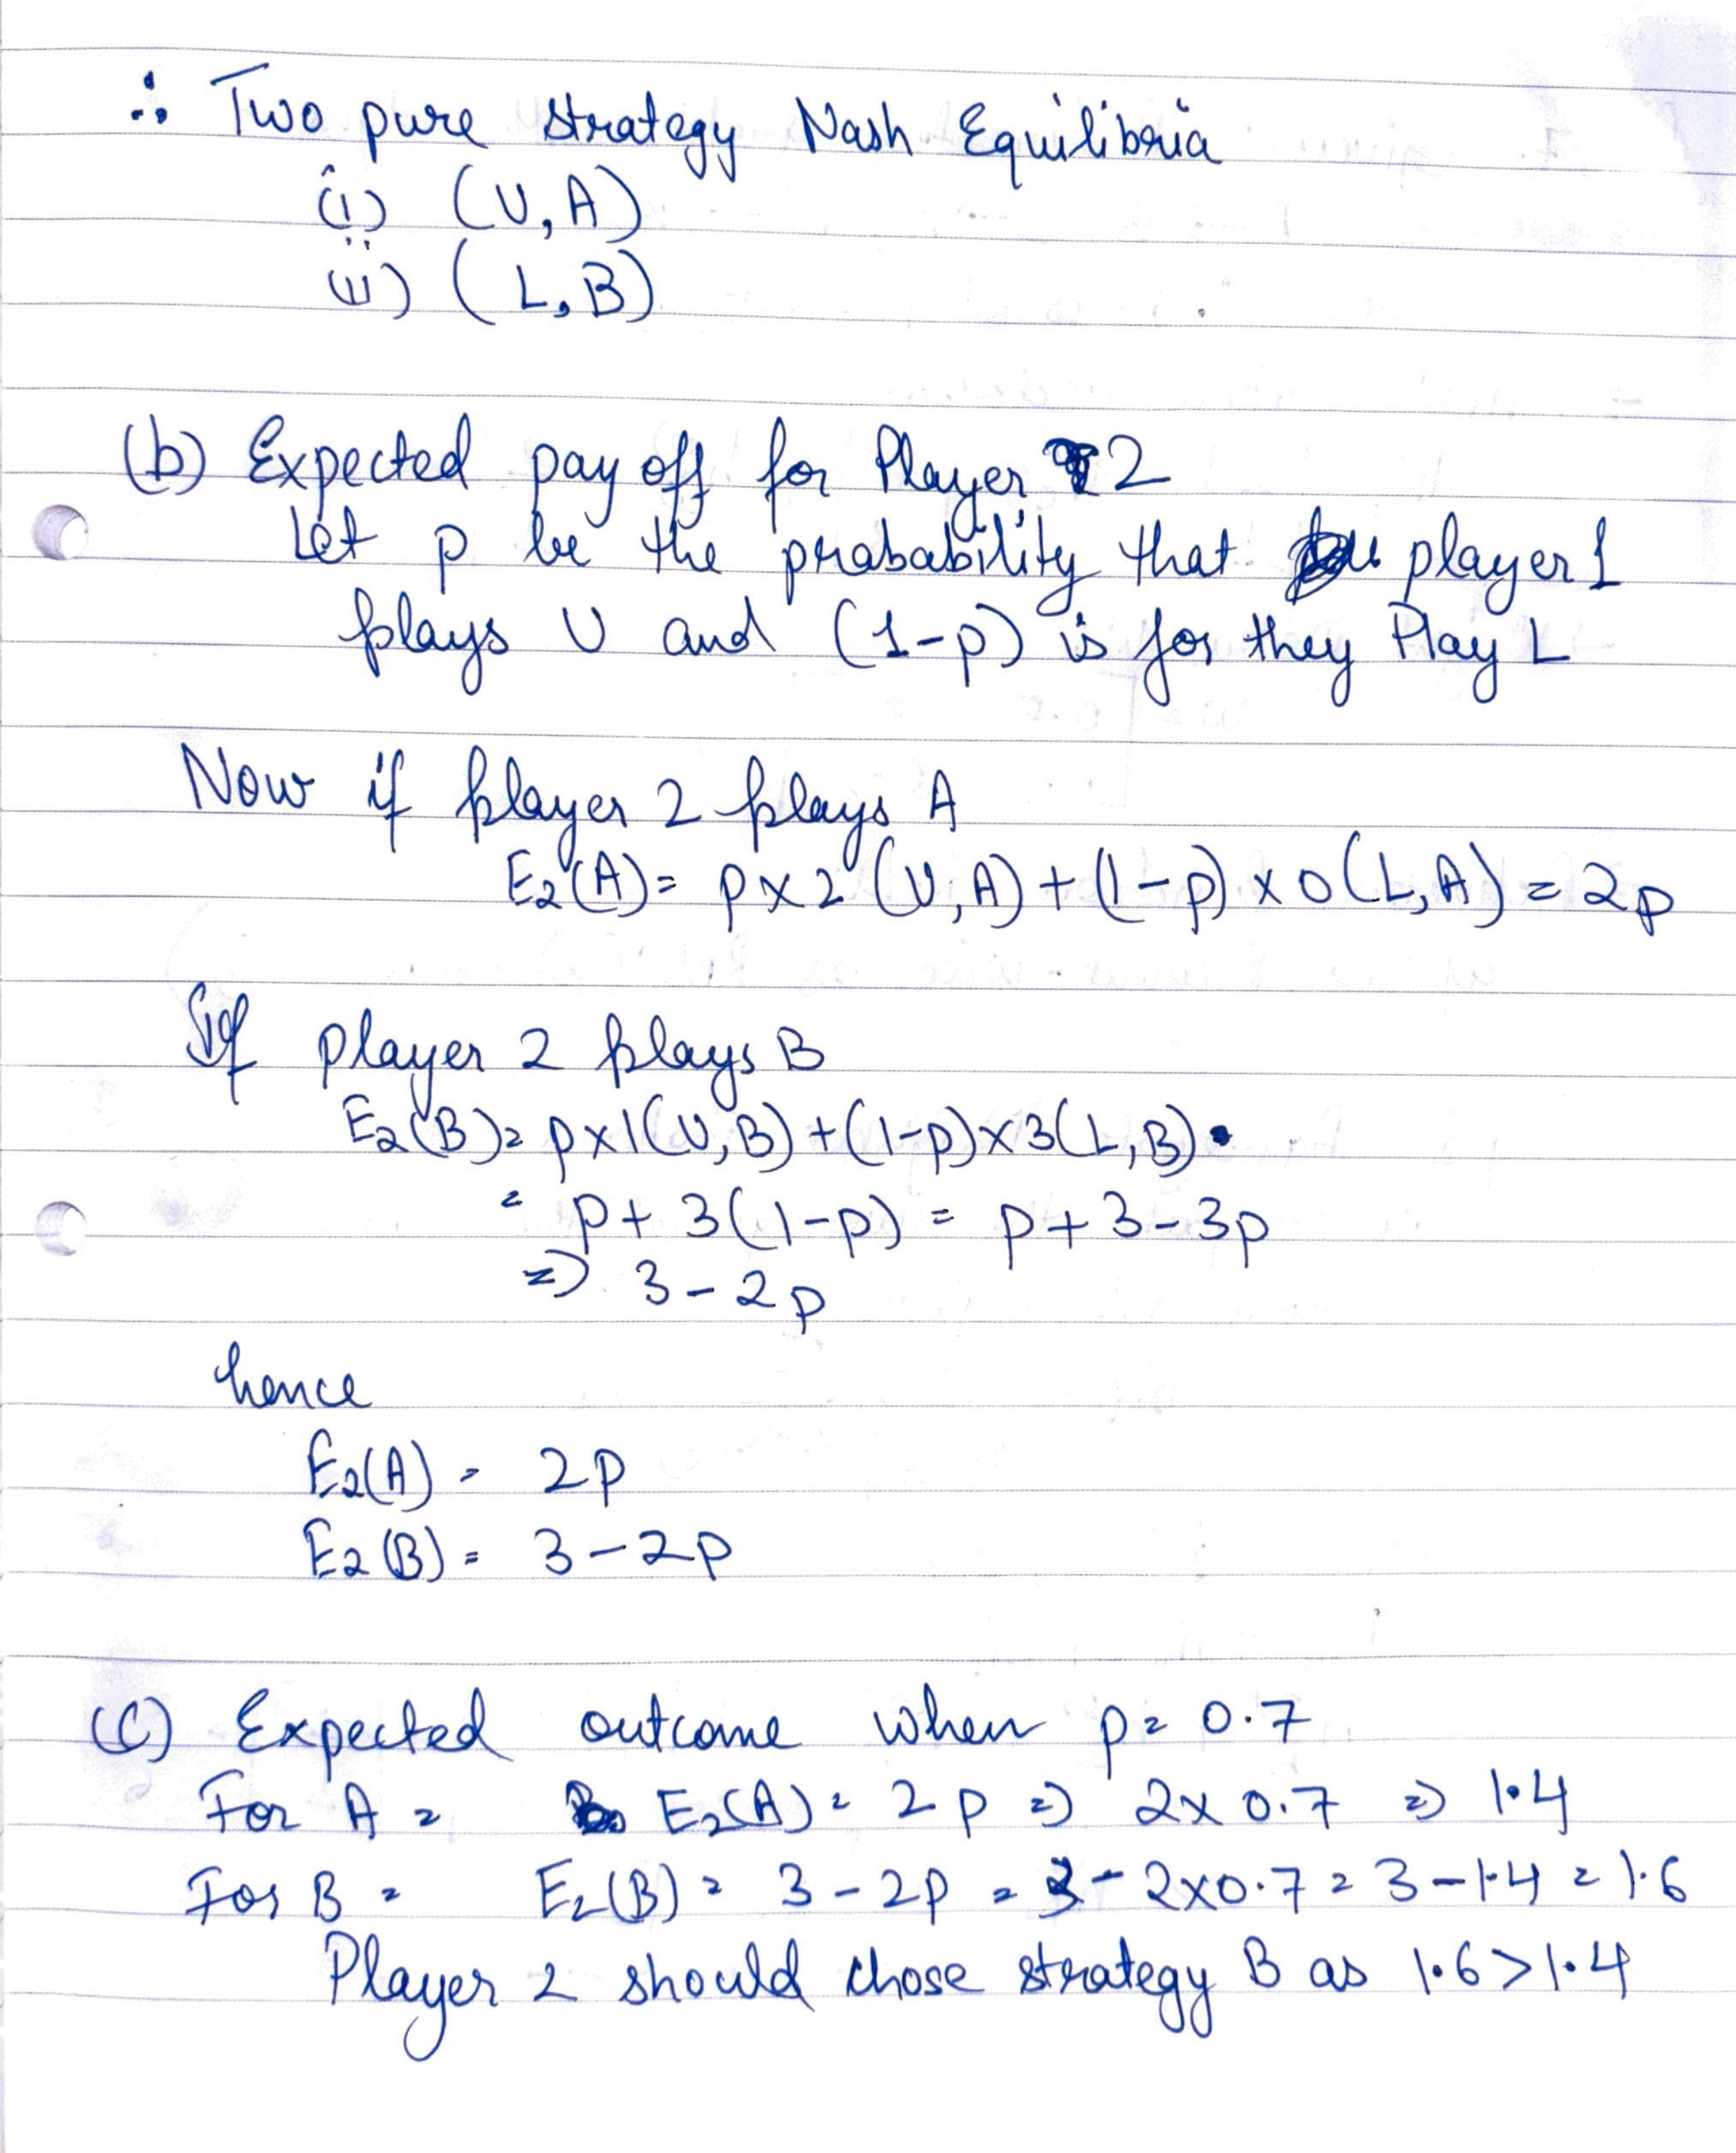 ∴ Two pure strategy Nash Equilibria
(i) (U, A)
(ii) (L, B)
(b) Expected pay off for Player 2
Let p be the probability that player 1
plays U and (1-p) is for they Play L
Now if player 2 plays A
E2(A) = p x 2 (U, A) + (1-p) x 0 (L, A) = 2p
If player 2 plays B
E2(B) = p x 1 (U, B) + (1-p) x 3 (L, B).
= p + 3(1-p) = p + 3 - 3p
=> 3 - 2p
hence
E2(A) = 2p
E2(B) = 3 - 2p
(C) Expected outcome when p = 0.7
For A = E2(A) = 2p => 2 x 0.7 => 1.4
For B = E2(B) = 3 - 2p = 3 - 2x0.7 = 3 - 1.4 = 1.6
Player 2 should chose strategy B as 1.6 > 1.4